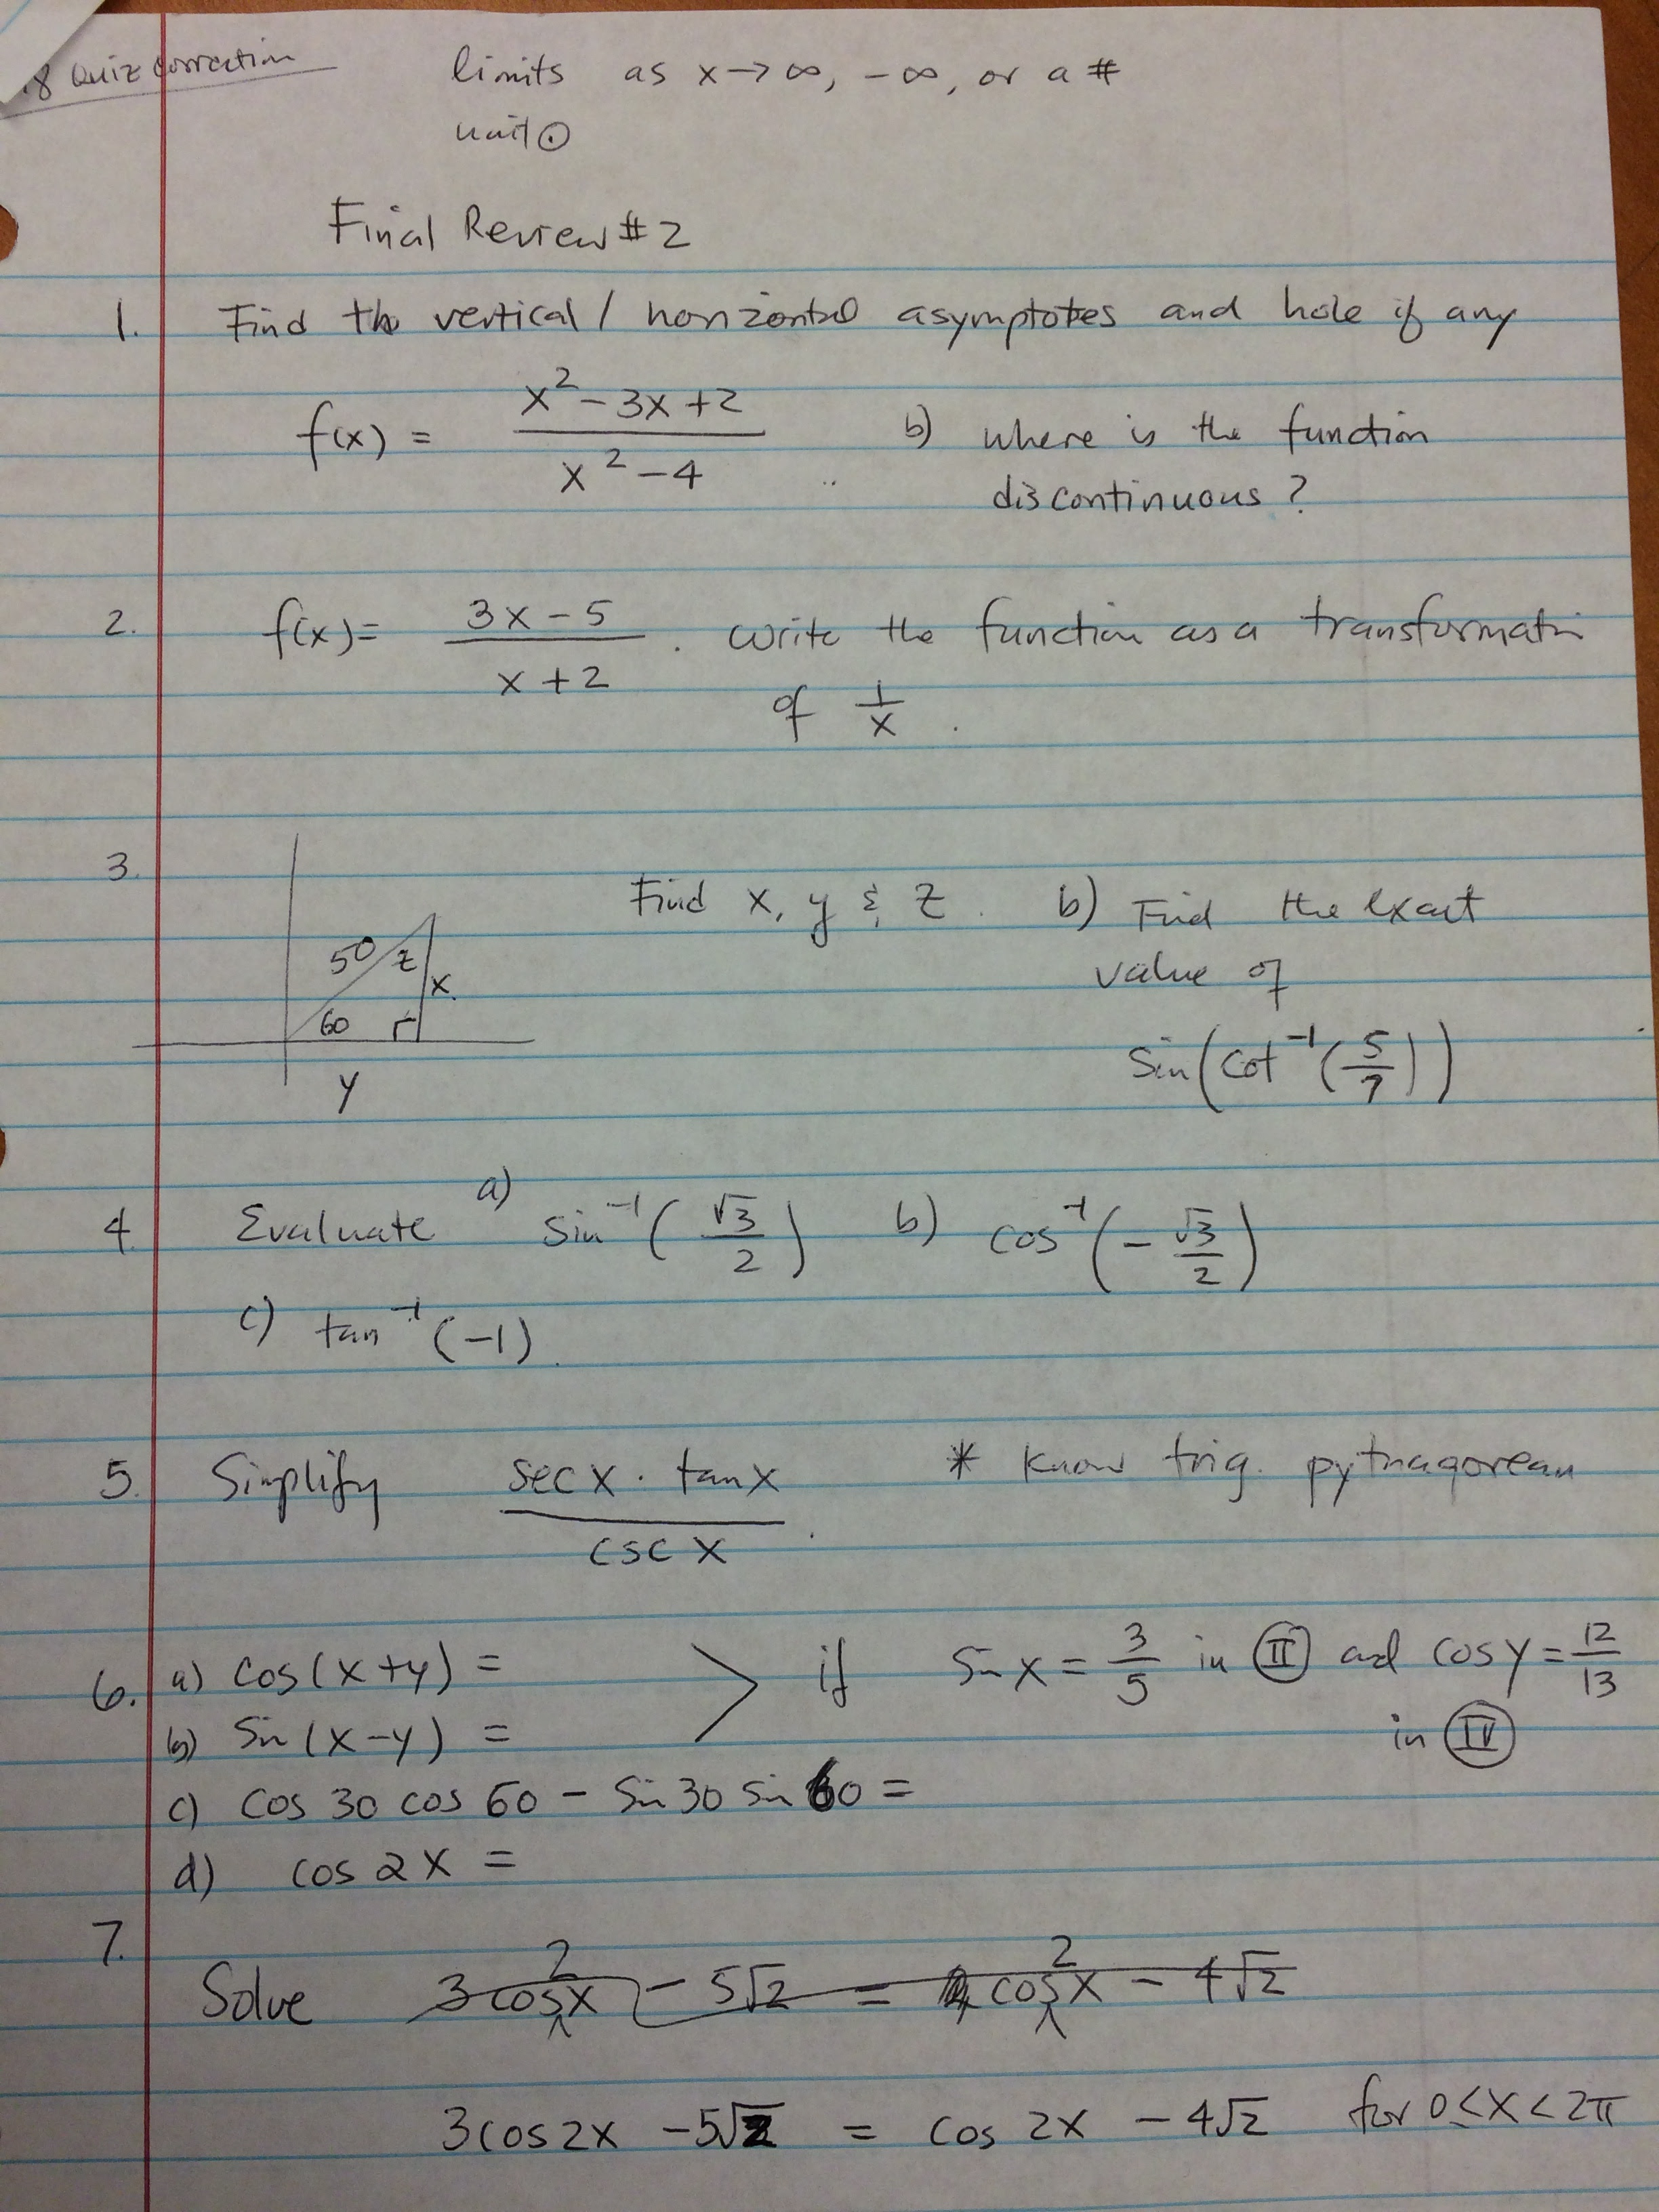 .8 Quiz correction
limits as x→∞, -∞, or a #
unit ⊙
Final Review #2
1. Find the vertical / horizontal asymptotes and hole if any
f(x) = (x² - 3x + 2)/(x² - 4) b) where is the function
discontinuous?
2. f(x) = (3x - 5)/(x + 2). write the function as a transformati
of 1/x.
3. Find x, y & z. b) Find the exact
value of
50 z x
60
y
sin(cot⁻¹(5/7))
4. Evaluate a) sin⁻¹(√3/2) b) cos⁻¹(-√3/2)
c) tan⁻¹(-1).
5. Simplify (sec x · tan x)/(csc x). * Know trig. pythagorean
6. a) cos(x+y) = > if sin x = 3/5 in II and cos y = 12/13
b) sin(x-y) = in IV
c) cos 30 cos 60 - sin 30 sin 60 =
d) cos 2x =
7.
Solve 3cos²x - 5√2 = cos²x - 4√2
3cos2x - 5√2 = cos 2x - 4√2 for 0≤x<2π